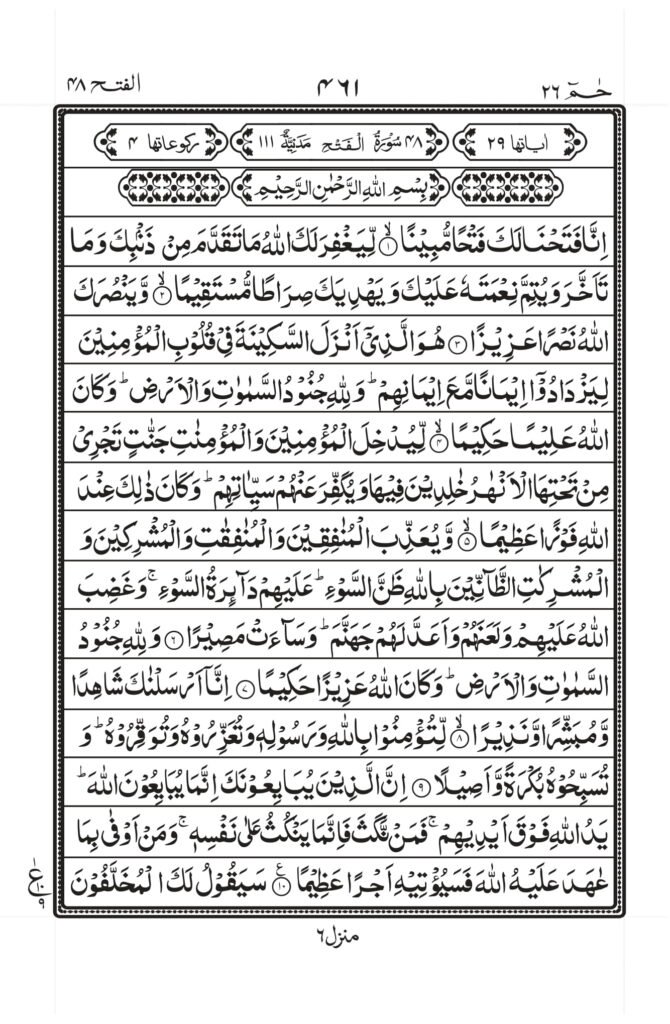 حٰمٓ ۲۶ ۴۶۱ الفتح ۴۸
اٰیاتها ۲۹ ۴۸ سُوْرَةُ الْفَتْحِ مَدَنِيَّةٌ ۱۱۱ رکوعاتها ۴
بِسْمِ اللهِ الرَّحْمٰنِ الرَّحِيْمِ
اِنَّا فَتَحْنَا لَكَ فَتْحًا مُّبِيْنًا ۙ﴿۱﴾ لِّيَغْفِرَ لَكَ اللهُ مَا تَقَدَّمَ مِنْ ذَنْۢبِكَ وَمَا
تَاَخَّرَ وَيُتِمَّ نِعْمَتَهٗ عَلَيْكَ وَيَهْدِيَكَ صِرَاطًا مُّسْتَقِيْمًا ۙ﴿۲﴾ وَّيَنْصُرَكَ
اللهُ نَصْرًا عَزِيْزًا ﴿۳﴾ هُوَ الَّذِيْۤ اَنْزَلَ السَّكِيْنَةَ فِيْ قُلُوْبِ الْمُؤْمِنِيْنَ
لِيَزْدَادُوْۤا اِيْمَانًا مَّعَ اِيْمَانِهِمْ ؕ وَلِلّٰهِ جُنُوْدُ السَّمٰوٰتِ وَالْاَرْضِ ؕ وَكَانَ
اللهُ عَلِيْمًا حَكِيْمًا ۙ﴿۴﴾ لِّيُدْخِلَ الْمُؤْمِنِيْنَ وَالْمُؤْمِنٰتِ جَنّٰتٍ تَجْرِيْ
مِنْ تَحْتِهَا الْاَنْهٰرُ خٰلِدِيْنَ فِيْهَا وَيُكَفِّرَ عَنْهُمْ سَيِّاٰتِهِمْ ؕ وَكَانَ ذٰلِكَ عِنْدَ
اللهِ فَوْزًا عَظِيْمًا ۙ﴿۵﴾ وَّيُعَذِّبَ الْمُنٰفِقِيْنَ وَالْمُنٰفِقٰتِ وَالْمُشْرِكِيْنَ وَ
الْمُشْرِكٰتِ الظَّآنِّيْنَ بِاللهِ ظَنَّ السَّوْءِ ؕ عَلَيْهِمْ دَآئِرَةُ السَّوْءِ ۚ وَغَضِبَ
اللهُ عَلَيْهِمْ وَلَعَنَهُمْ وَاَعَدَّ لَهُمْ جَهَنَّمَ ؕ وَسَآءَتْ مَصِيْرًا ﴿۶﴾ وَلِلّٰهِ جُنُوْدُ
السَّمٰوٰتِ وَالْاَرْضِ ؕ وَكَانَ اللهُ عَزِيْزًا حَكِيْمًا ﴿۷﴾ اِنَّاۤ اَرْسَلْنٰكَ شَاهِدًا
وَّمُبَشِّرًا وَّنَذِيْرًا ۙ﴿۸﴾ لِّتُؤْمِنُوْا بِاللهِ وَرَسُوْلِهٖ وَتُعَزِّرُوْهُ وَتُوَقِّرُوْهُ ؕ وَ
تُسَبِّحُوْهُ بُكْرَةً وَّاَصِيْلًا ﴿۹﴾ اِنَّ الَّذِيْنَ يُبَايِعُوْنَكَ اِنَّمَا يُبَايِعُوْنَ اللهَ ؕ
يَدُ اللهِ فَوْقَ اَيْدِيْهِمْ ۚ فَمَنْ نَّكَثَ فَاِنَّمَا يَنْكُثُ عَلٰى نَفْسِهٖ ۚ وَمَنْ اَوْفٰى بِمَا
عٰهَدَ عَلَيْهُ اللهَ فَسَيُؤْتِيْهِ اَجْرًا عَظِيْمًا ﴿۱۰﴾ سَيَقُوْلُ لَكَ الْمُخَلَّفُوْنَ
ع ۱۰ ۹
منزل ۶